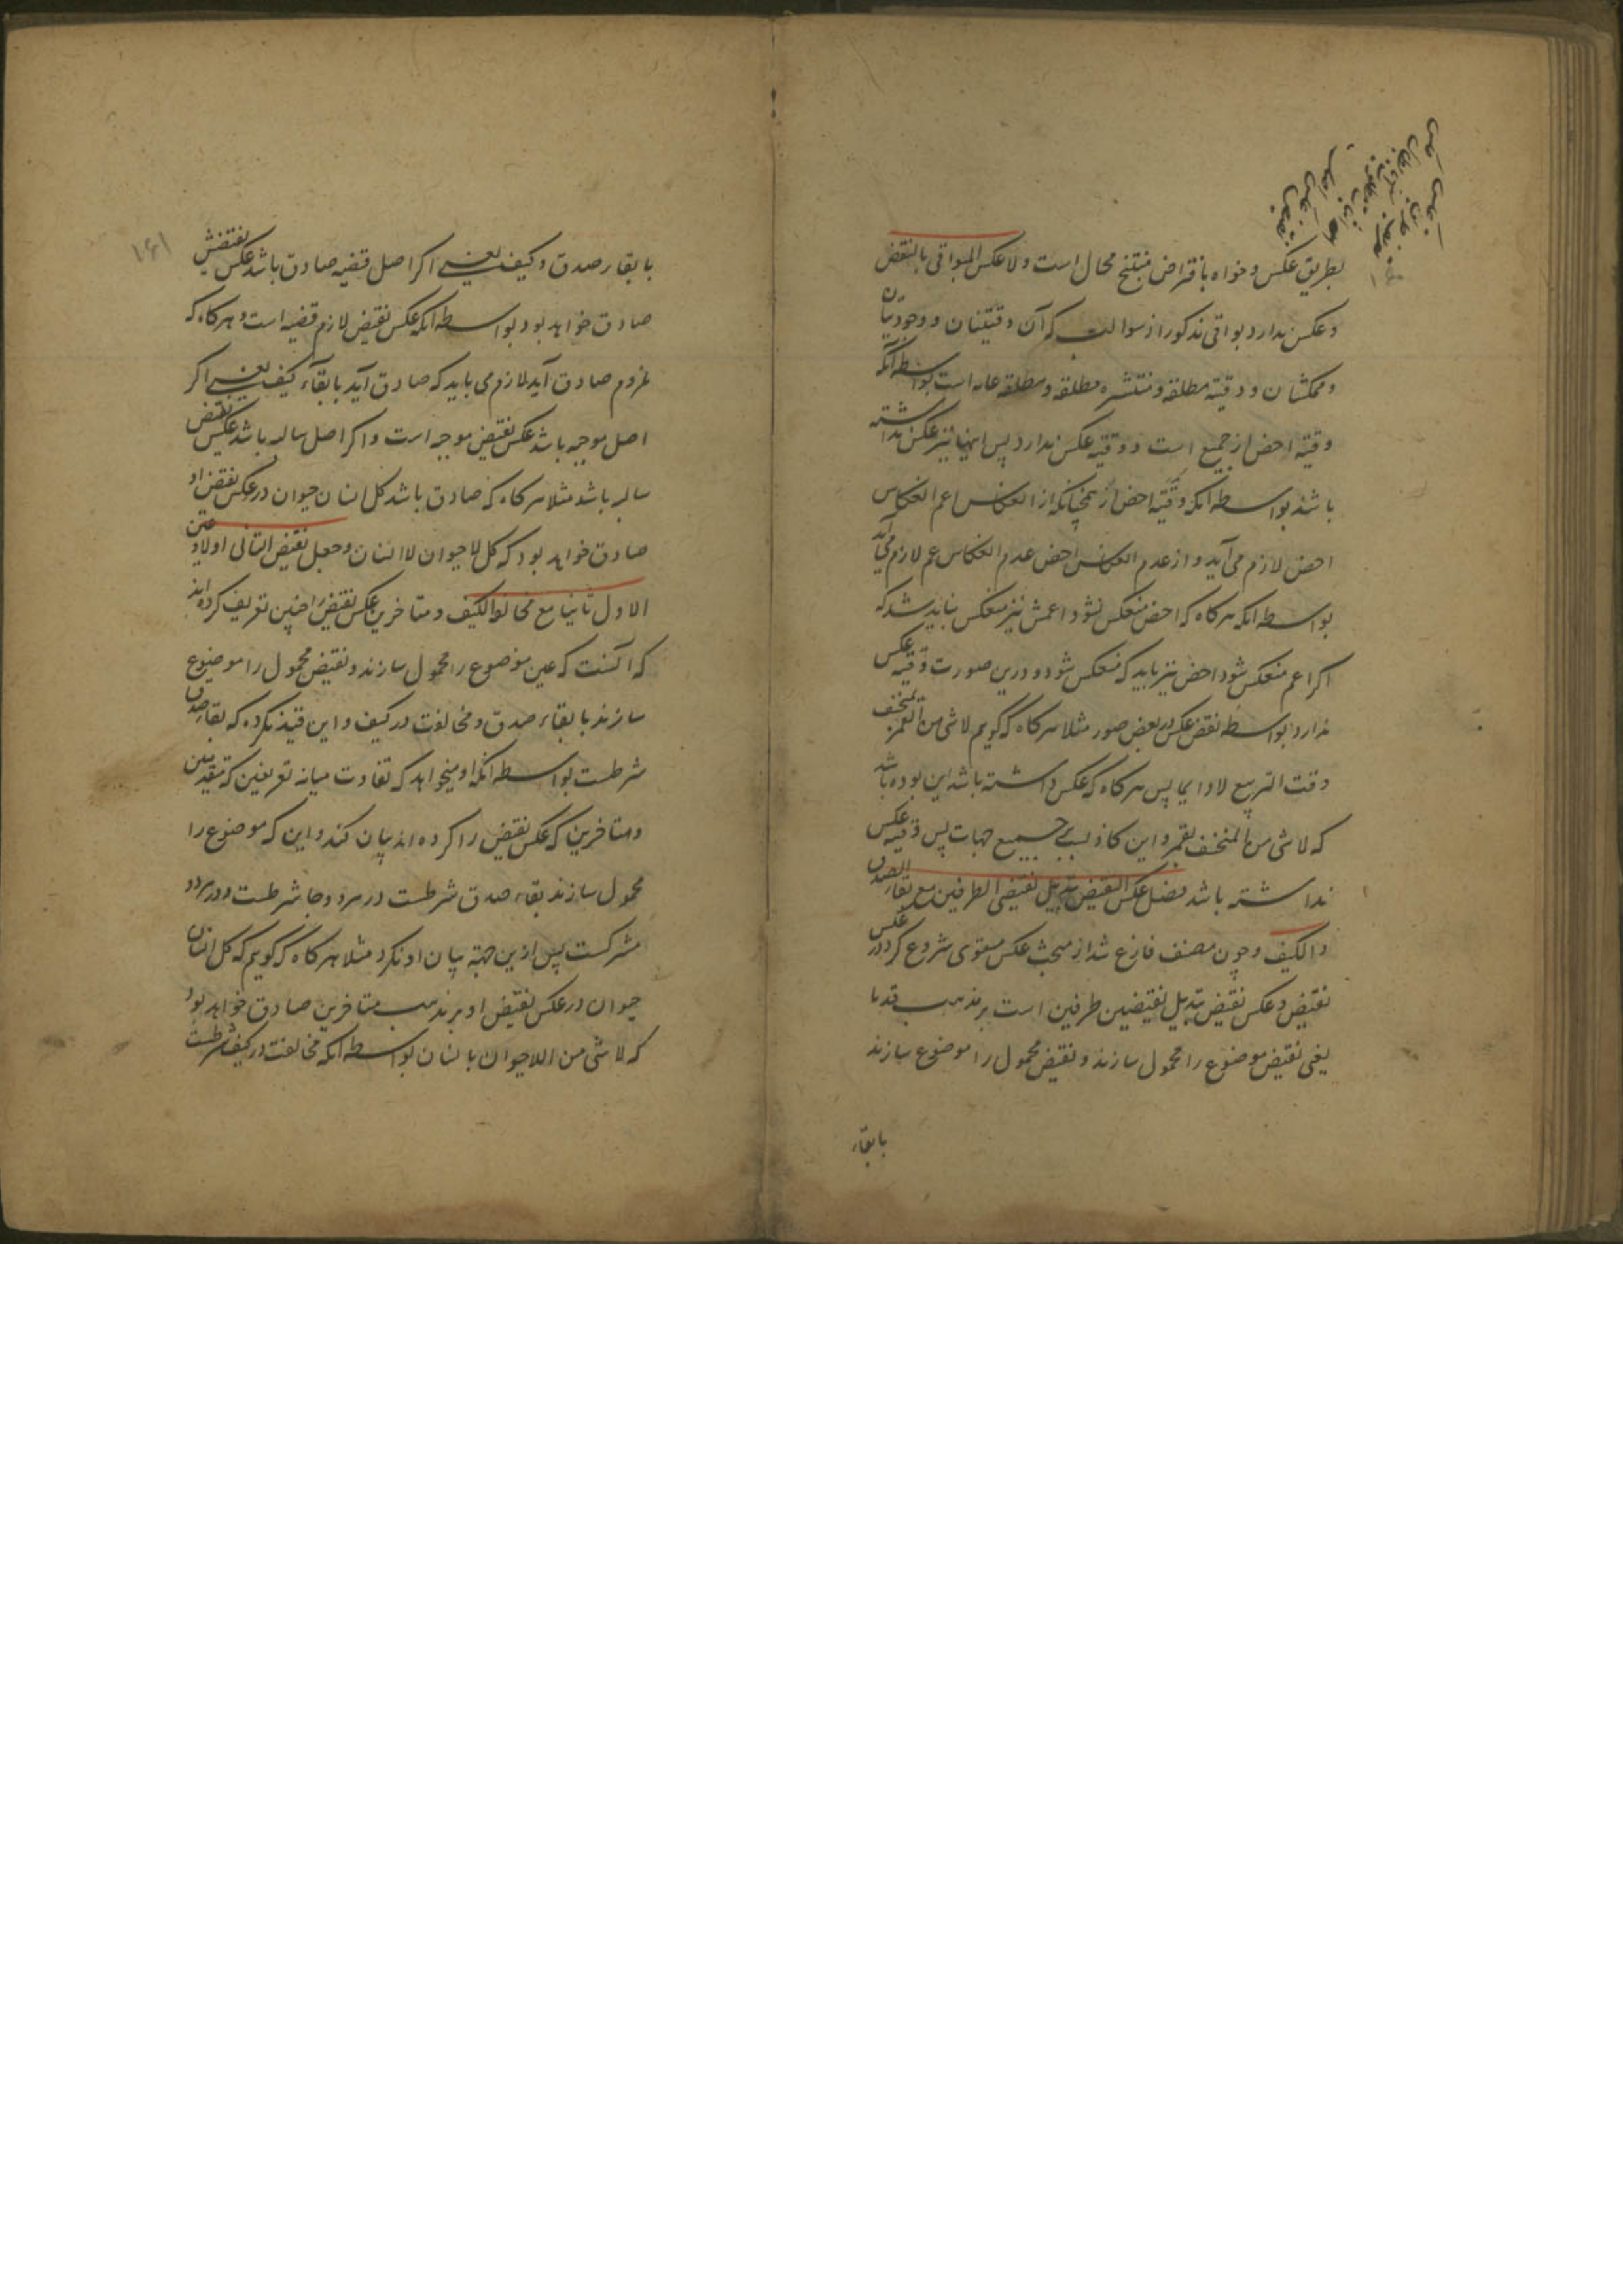 بطریق عکس و خواه بافتراض منتج محال است ولا عکس للبواقی بالنقض
و عکس ندارد بواقی مذکور از سوالب که آن وقتیتان و وجودیتان
و ممکنتان و وقتیه مطلقه و منتشره مطلقه و مطلقه عامه است بواسطه آنکه
وقتیه اخص از جمیع است و وقتیه عکس ندارد پس اینها نیز عکس نداشته
باشند بواسطه آنکه وقتیه اخص از همچنانکه از انعکاس اعم انعکاس
اخص لازم می آید و از عدم انعکاس اخص عدم انعکاس اعم لازم می آید
بواسطه آنکه هرکاه که اخص منعکس نشود اعمش نیز منعکس نباید شد که
اکر اعم منعکس شود اخص نیز باید که منعکس شود و درین صورت وقتیه عکس
ندارد بواسطه نقض عکس در بعض صور مثلا هرکاه که کویم لاشی من القمر بمنخسف
وقت التربیع لادایما پس هرکاه که عکس داشته باشد این بوده باشد
که لاشی من المنخسف بقمر و این کاذب است بجمیع جهات پس وقتیه عکس
نداشته باشد فصل عکس النقیض تبدیل نقیضی الطرفین مع بقاء الصدق
والکیف و چون مصنف فارغ شد از مبحث عکس مستوی شروع کرد در عکس
نقیض و عکس نقیض تبدیل نقیضین طرفین است بر مذهب قدما
یعنی نقیض موضوع را محمول سازند و نقیض محمول را موضوع سازند
بابقاء
۱۶۱
بابقاء صدق و کیف یعنی اکر اصل قضیه صادق باشد عکس نقیضش
صادق خواهد بود بواسطه آنکه عکس نقیض لازم قضیه است و هرکاه که
ملزوم صادق آید لازم می باید که صادق آید بابقاء کیف یعنی اکر
اصل موجبه باشد عکس نقیض موجبه است و اکر اصل سالبه باشد عکس نقیض
سالبه باشد مثلا هرکاه که صادق باشد کل انسان حیوان در عکس نقیض او
صادق خواهد بود که کل لا حیوان لا انسان و جعل نقیض الثانی اولا و عین
الاول ثانیا مع مخالفة الکیف و متاخرین عکس نقیض را چنین تعریف کرده اند
که آنست که عین موضوع را محمول سازند و نقیض محمول را موضوع
سازند بابقاء صدق و مخالفت در کیف و این قید نکرده که بقاء صدق
شرطست بواسطه آنکه او میخواهد که تفاوت میانه تعریفین که متقدمین
و متاخرین که عکس نقیض را کرده اند بیان کند و این که موضوع را
محمول سازند بقاء صدق شرطست در هر دو جا شرطست و در هر دو
مشرکست پس ازین جهة بیان او نکرد مثلا هرکاه که کویم که کل انسان
حیوان در عکس نقیض او بر مذهب متاخرین صادق خواهد بود
که لاشی من اللاحیوان بانسان بواسطه آنکه مخالفت در کیف شرطست